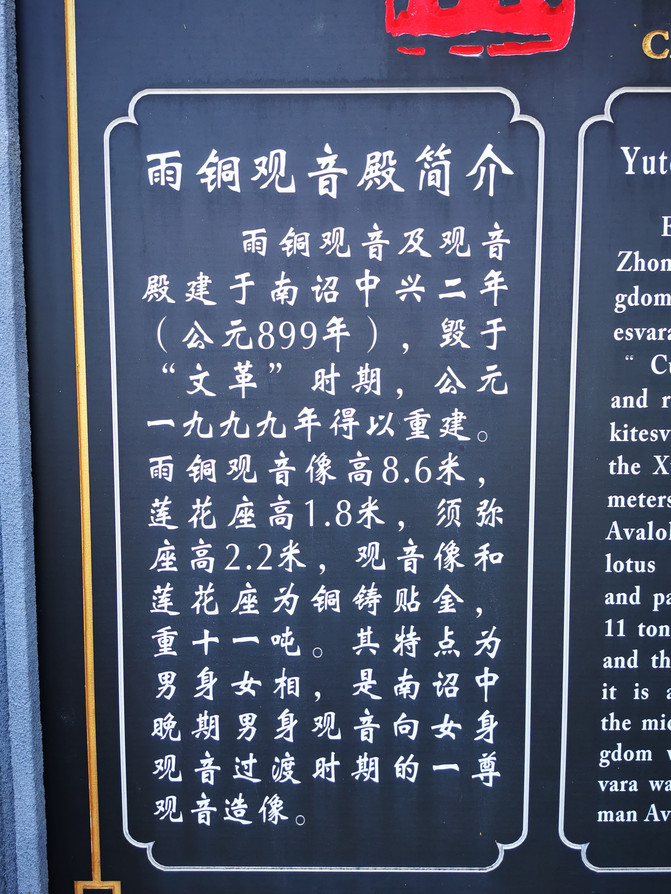 雨铜观音殿简介
雨铜观音及观音
殿建于南诏中兴二年
（公元899年），毁于
“文革”时期，公元
一九九九年得以重建。
雨铜观音像高8.6米，
莲花座高1.8米，须弥
座高2.2米，观音像和
莲花座为铜铸贴金，
重十一吨。其特点为
男身女相，是南诏中
晚期男身观音向女身
观音过渡时期的一尊
观音造像。
Zhon
gdom
esvara
“ Cu
and r
kitesv
the X
meters
Avalo
lotus
and pa
11 ton
and th
it is a
the mid
gdom v
vara wa
man Av